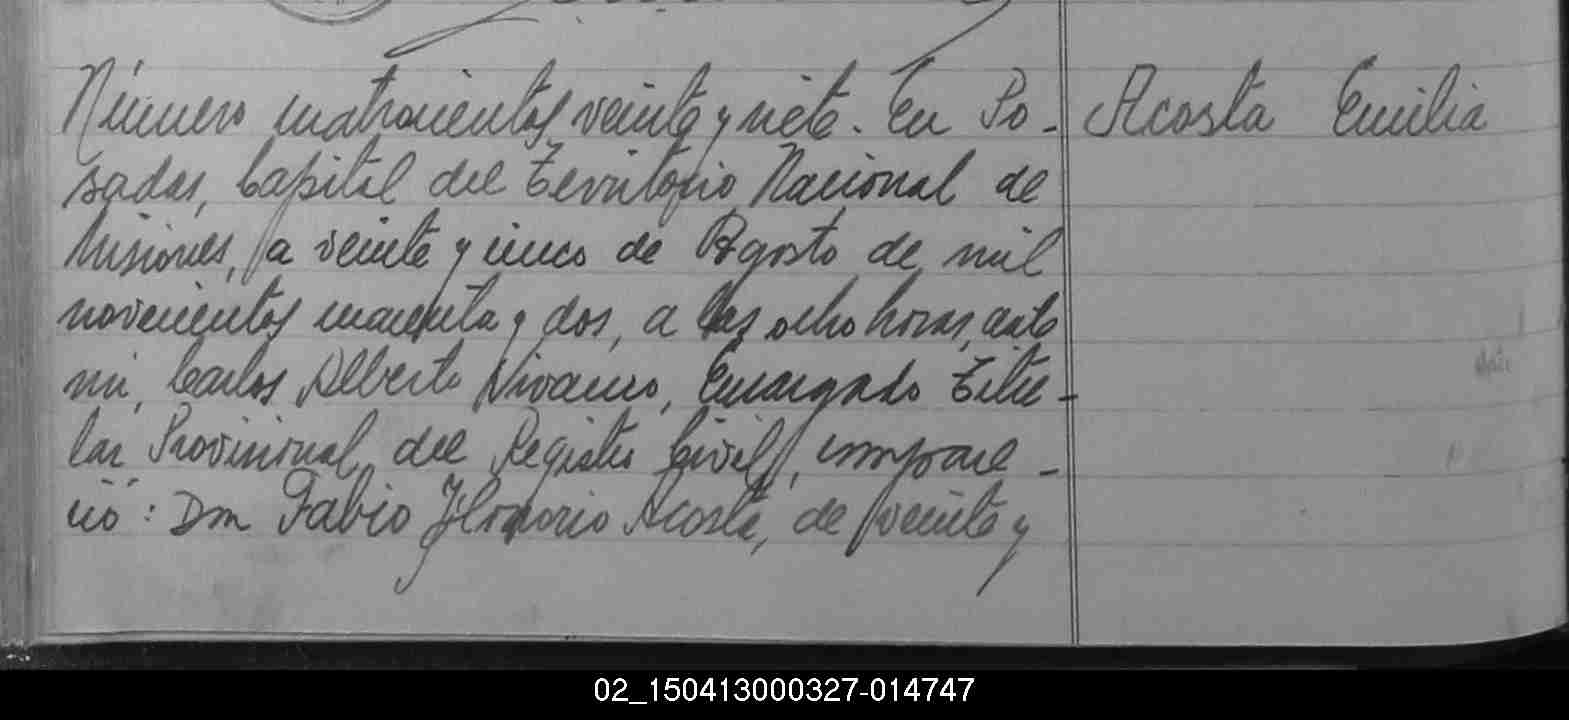 Número cuatrocientos veinte y siete. En Po-
sadas, Capital del Territorio Nacional de
Misiones, a veinte y cinco de Agosto de mil
novecientos cuarenta y dos, a las ocho horas, ante
mi, Carlos Alberto Vivanco, Encargado Titu-
lar Provisional del Registro Civil, compare-
ció: Don Fabio Honorio Acosta, de veinte y
Acosta Emilia
02_150413000327-014747